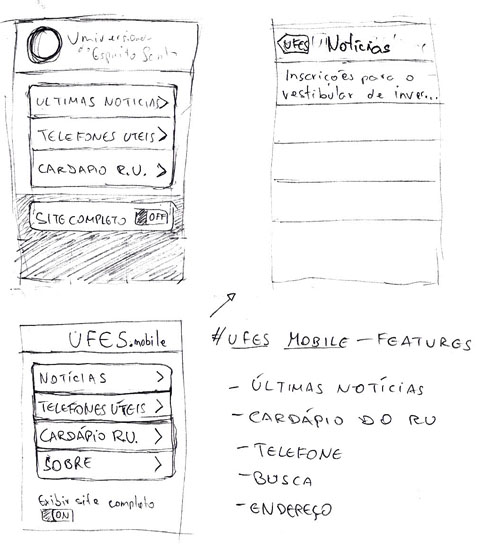 Universidade
Espírito Santo
ULTIMAS NOTICIAS >
TELEFONES UTEIS >
CARDAPIO R.U. >
SITE COMPLETO OFF
UFES Notícias
Inscrições para o
vestibular de inver...
UFES.mobile
NOTÍCIAS >
TELEFONES ÚTEIS >
CARDÁPIO R.U. >
SOBRE >
Exibir site completo
ON
# UFES MOBILE - FEATURES
- ÚLTIMAS NOTÍCIAS
- CARDÁPIO DO RU
- TELEFONE
- BUSCA
- ENDEREÇO